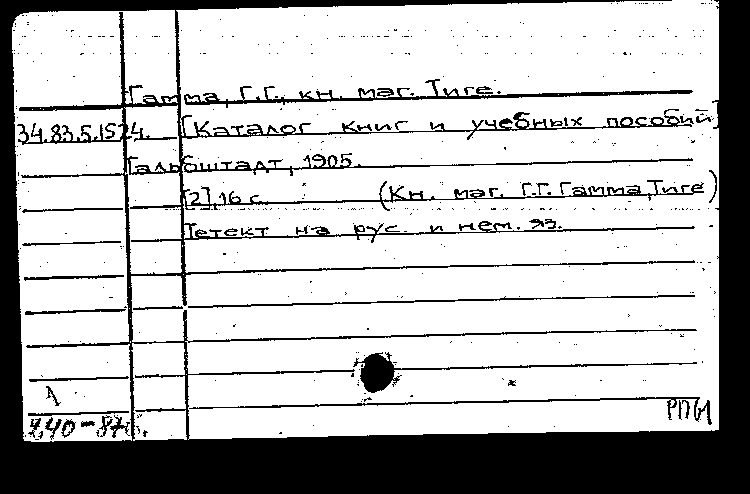 Гамма, Г.Г., кн. маг. Тиге.
34.83.5.1574. [Каталог книг и учебных пособий]
Гальбштадт, 1905.
[2],16 с. (Кн. маг. Г.Г. Гамма, Тиге)
Тетект на рус. и нем. яз.